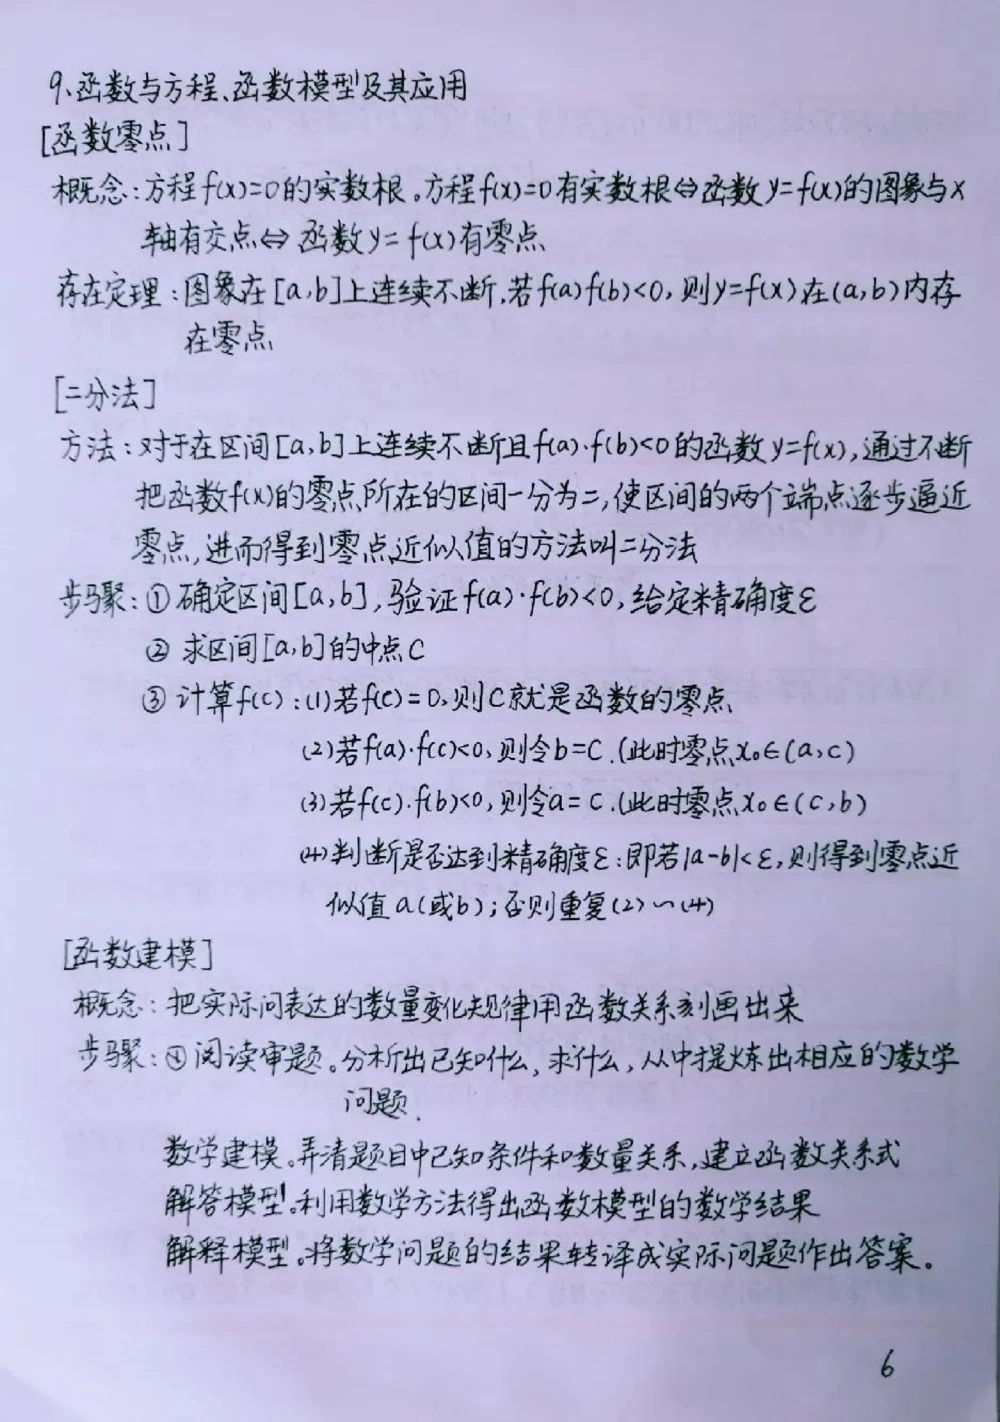 9、函数与方程、函数模型及其应用
[函数零点]
概念：方程f(x)=0的实数根。方程f(x)=0有实数根⇔函数y=f(x)的图象与x
轴有交点⇔函数y=f(x)有零点
存在定理：图象在[a,b]上连续不断,若f(a)f(b)<0,则y=f(x)在(a,b)内存
在零点
[二分法]
方法：对于在区间[a,b]上连续不断且f(a)·f(b)<0的函数y=f(x),通过不断
把函数f(x)的零点所在的区间一分为二,使区间的两个端点逐步逼近
零点,进而得到零点近似值的方法叫二分法
步骤：①确定区间[a,b],验证f(a)·f(b)<0,给定精确度ε
②求区间[a,b]的中点C
③计算f(c)：(1)若f(c)=0,则C就是函数的零点
(2)若f(a)·f(c)<0,则令b=C.(此时零点x₀∈(a,c)
(3)若f(c)·f(b)<0,则令a=C.(此时零点x₀∈(c,b)
(4)判断是否达到精确度ε：即若|a-b|<ε,则得到零点近
似值a(或b)；否则重复(2)~(4)
[函数建模]
概念：把实际问表达的数量变化规律用函数关系刻画出来
步骤：④阅读审题。分析出已知什么,求什么,从中提炼出相应的数学
问题.
数学建模。弄清题目中已知条件和数量关系,建立函数关系式
解答模型。利用数学方法得出函数模型的数学结果
解释模型。将数学问题的结果转译成实际问题作出答案。
6